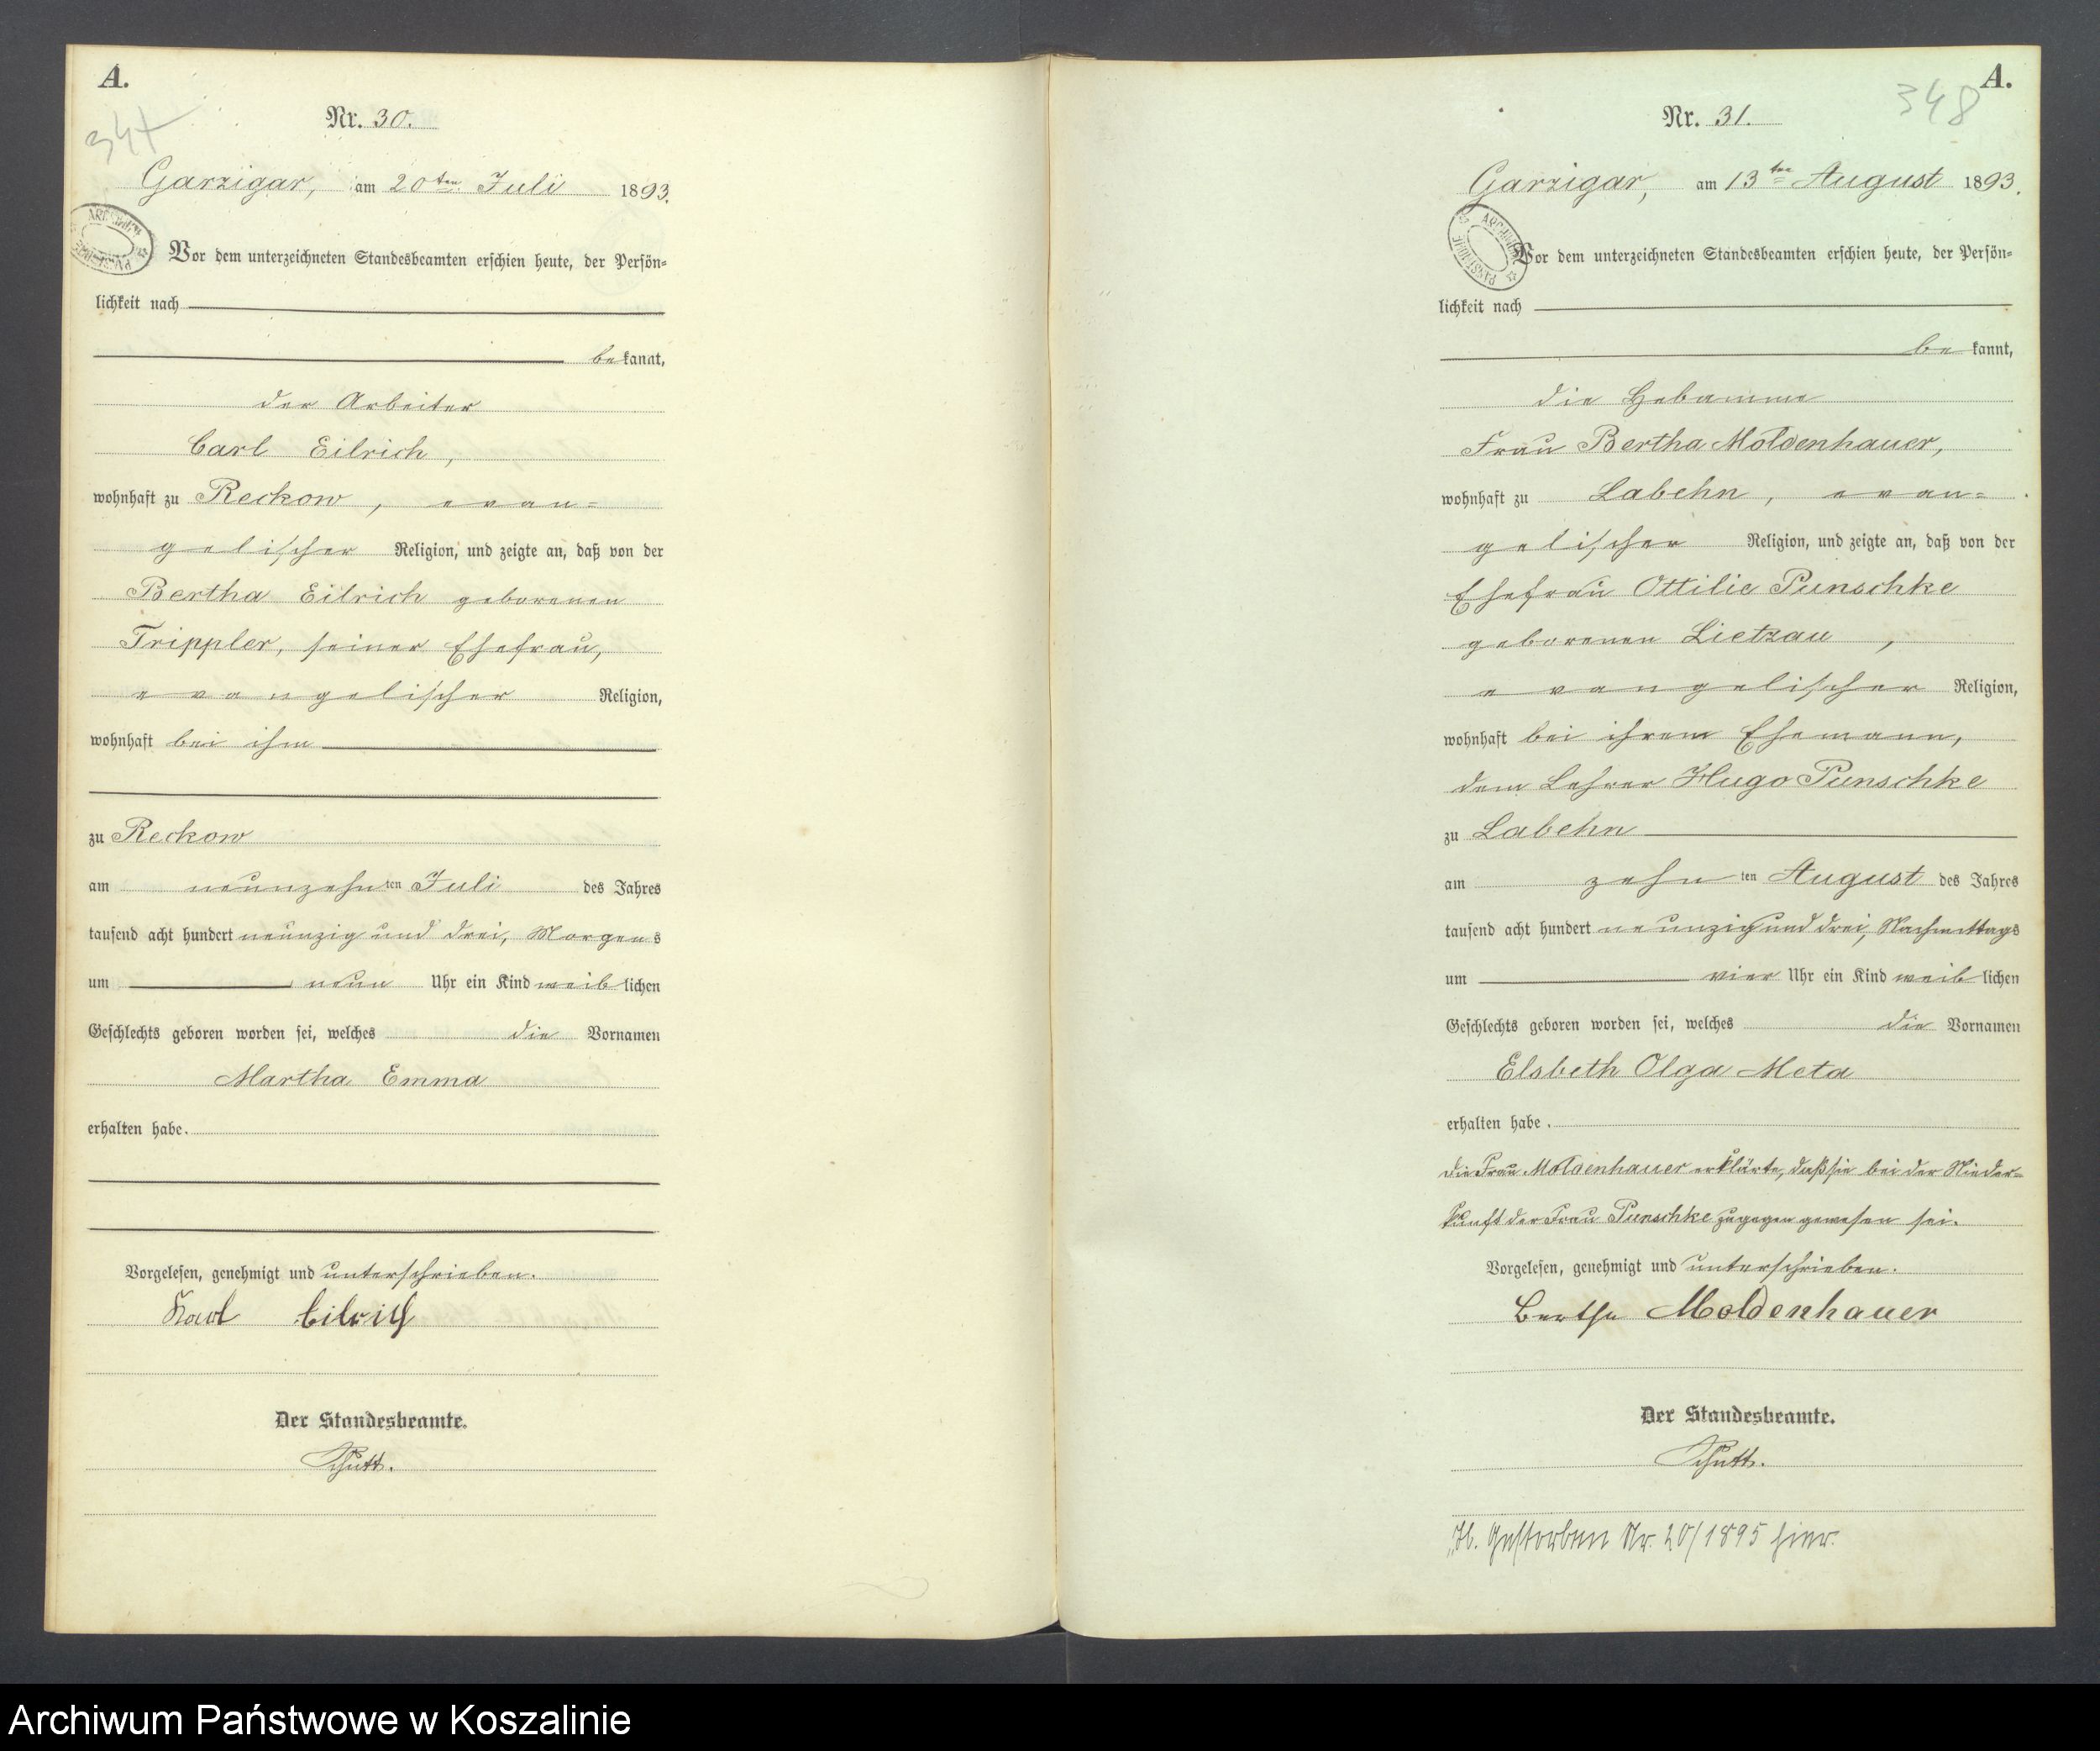 A.
347
Nr. 30.
Garzigar, am 20ten Juli 1893.
Vor dem unterzeichneten Standesbeamten erschien heute, der Persön=
lichkeit nach
bekannt,
der Arbeiter
Carl Eilrich,
wohnhaft zu Reckow, evan=
gelischer Religion, und zeigte an, daß von der
Bertha Eilrich geborenen
Trippler, seiner Ehefrau,
evangelischer Religion,
wohnhaft bei ihm
zu Reckow
am neunzehnten Juli des Jahres
tausend acht hundert neunzig und drei, Morgens
um neun Uhr ein Kind weiblichen
Geschlechts geboren worden sei, welches die Vornamen
Martha Emma
erhalten habe.
Vorgelesen, genehmigt und unterschrieben.
Karl Eilrich
Der Standesbeamte.
Schutt.
A.
348
Nr. 31.
Garzigar, am 13ten August 1893.
Vor dem unterzeichneten Standesbeamten erschien heute, der Persön=
lichkeit nach
bekannt,
die Hebamme
Frau Bertha Moldenhauer,
wohnhaft zu Labehn, evan=
gelischer Religion, und zeigte an, daß von der
Ehefrau Ottilie Punschke
geborenen Lietzau,
evangelischer Religion,
wohnhaft bei ihrem Ehemann,
dem Lehrer Hugo Punschke
zu Labehn
am zehnten August des Jahres
tausend acht hundert neunzig und drei, Nachmittags
um vier Uhr ein Kind weiblichen
Geschlechts geboren worden sei, welches die Vornamen
Elsbeth Olga Meta
erhalten habe.
Die Frau Moldenhauer erklärte, daß sie bei der Nieder=
kunft der Frau Punschke zugegen gewesen sei.
Vorgelesen, genehmigt und unterschrieben.
Bertha Moldenhauer
Der Standesbeamte.
Schutt.
Gestorben Nr. 20/1895 hier.
Archiwum Państwowe w Koszalinie